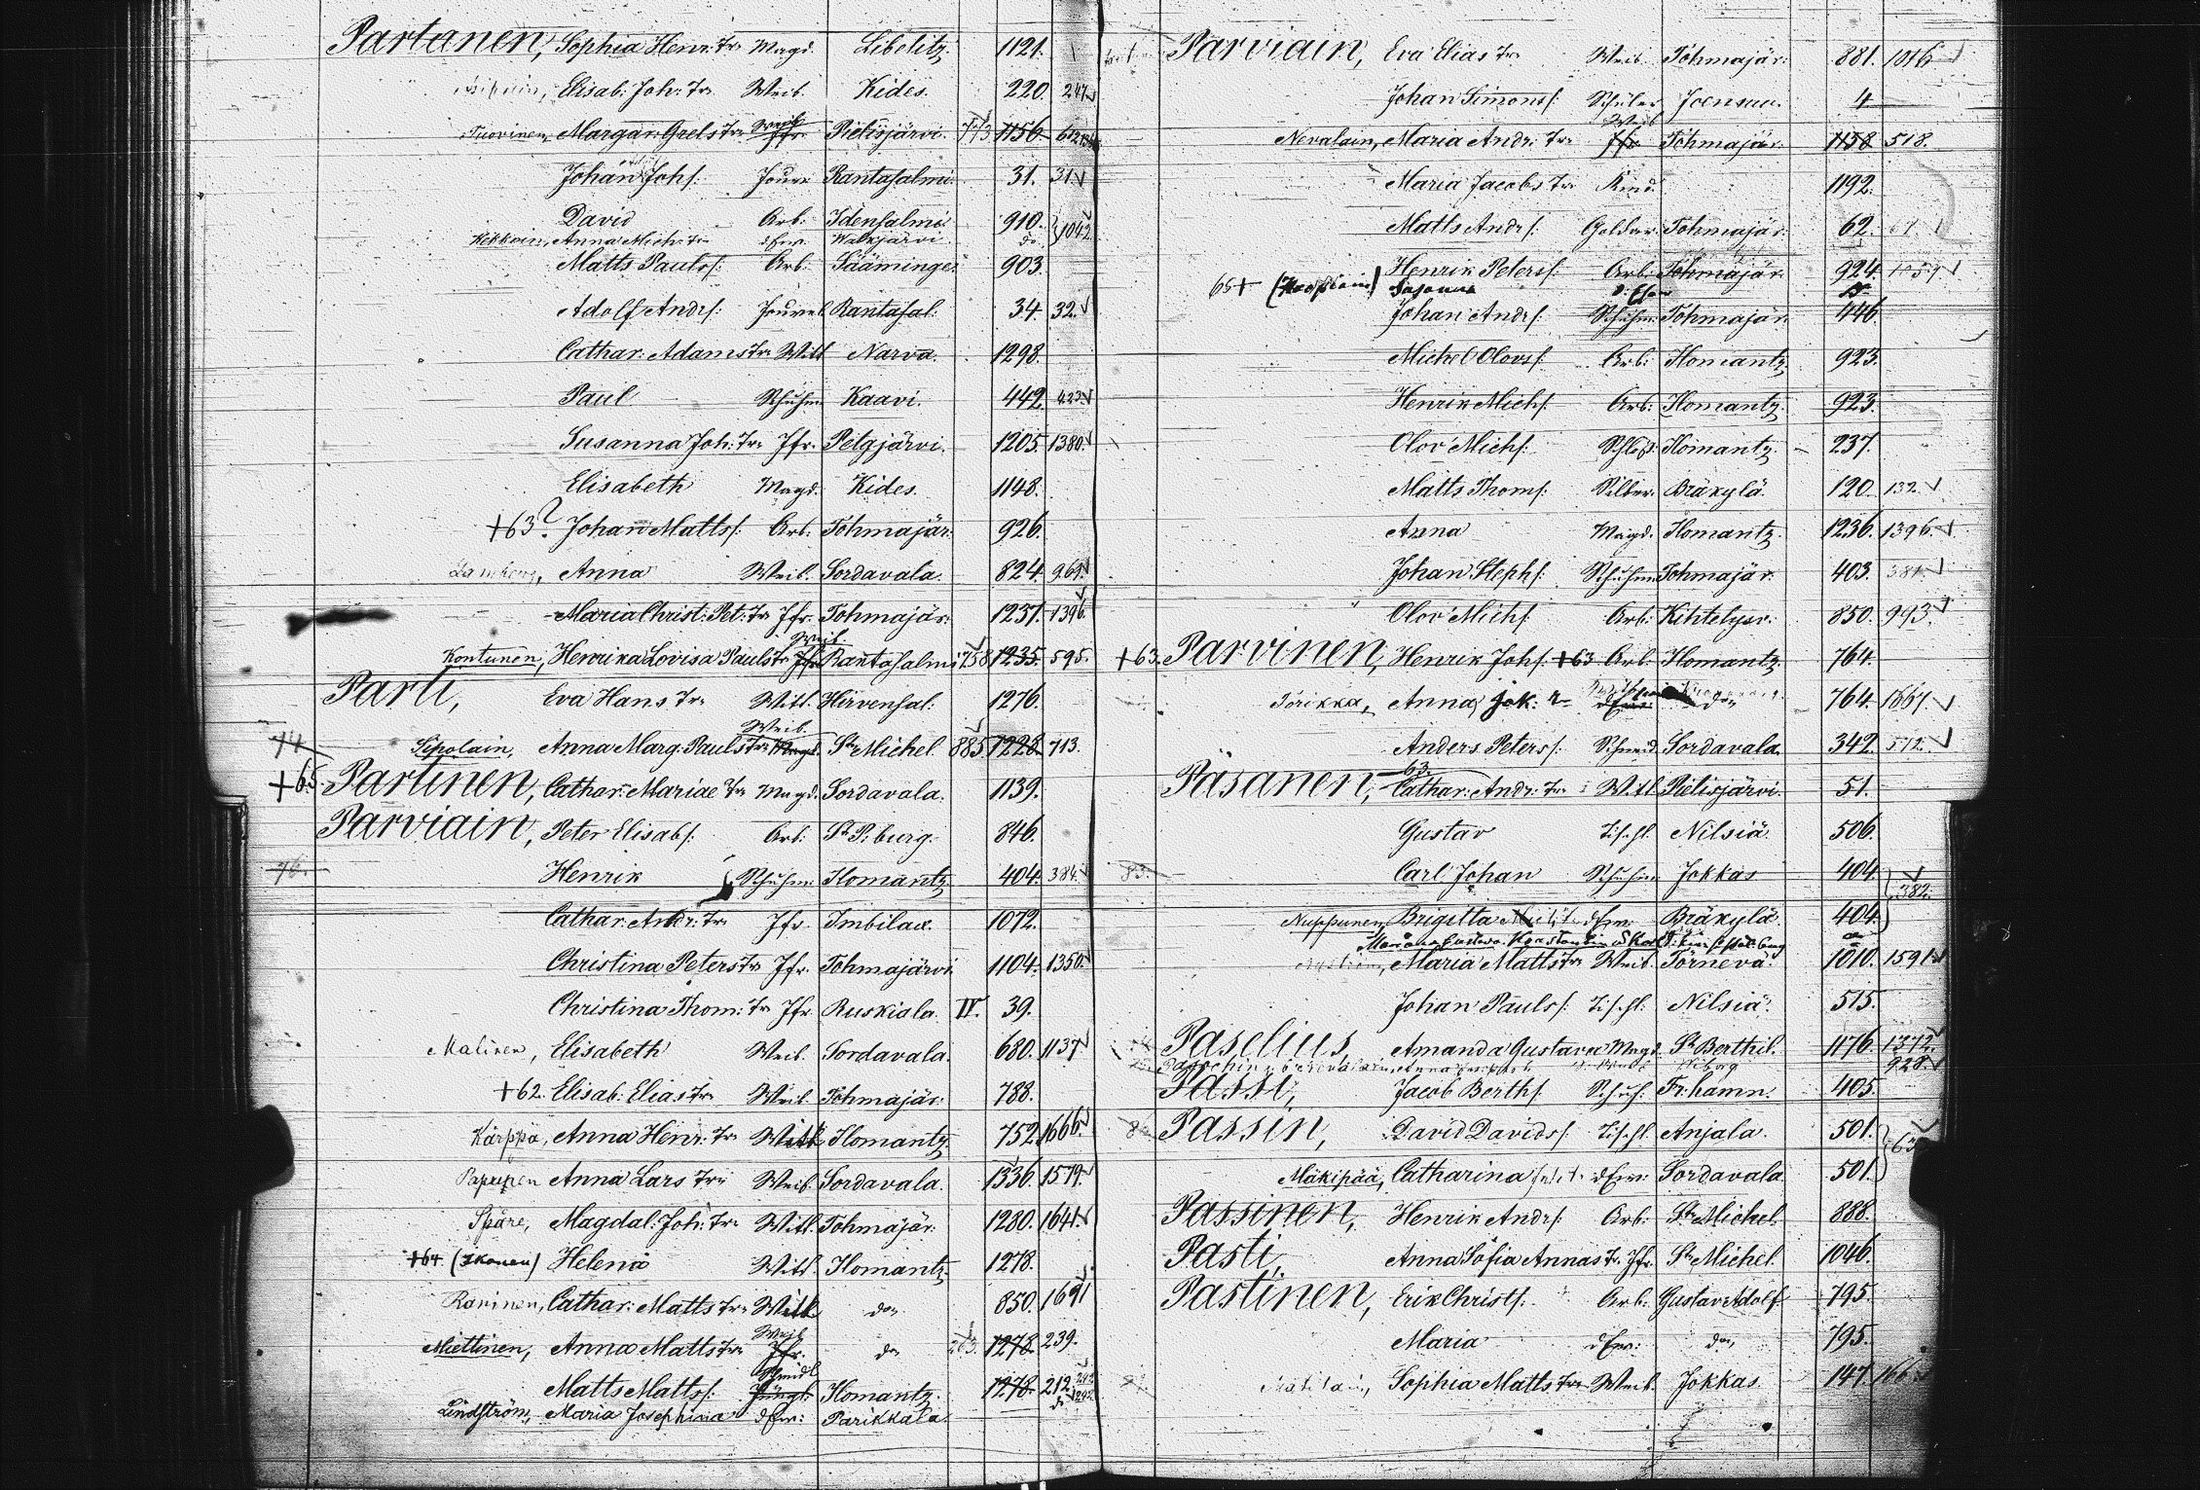 Partanen, Sophia Henr: Tr Magd. Libelitz. 1121.
Elisab: Joh: Tr Weib. Kides. 220. 247
Tuovinen, Margar: Grels Tr Weib Jfr. Pielisjärvi. 773 1156
Johan Johs: Rantasalmi 31. 31.
David Arb: Idensalmi. 910. 1042
Kekkoin, Anna Mich: Tr dErw. Walkjärvi do
Matts Pauls: Arb: Sääminge. 903.
Adolf Andrs: Rantasal: 34. 32.
Cathar: Adams Tr Witt Narva. 1298.
Paul Schuhm Kaavi. 442. 423
Susanna Joh: Tr Jfr. Pelgjärvi. 1205. 1380.
Elisabeth Magd. Kides. 1148.
+63? Johan Matts: Arb: Tohmajär: 926.
Anna Weib. Sordavala. 824. 969
Maria Christ: Pet: Tr Jfr. Tohmajär: 1237. 1396.
Kontunen, Henrika Lovisa Pauls Tr Weib. Jfr Rantasalmi 758 1235. 595.
Parti, Eva Hans Tr Witt. Hirvensal: 1276.
74 Sipolain, Anna Marg: Pauls Tr Weib. Magd. St Michel 885 1228. 713.
+65. Partinen, Cathar: Mariae Tr Magd. Sordavala. 1139.
Parviain, Peter Elisabs: Arb: St P:burg. 846.
76. Henrik Schuhm: Ilomantz 404. 384.
Cathar: Andr: Tr Jfr. Imbilax. 1072.
Christina Peters Tr Jfr. Tohmajärvi 1104. 1350.
Christina Thom: Tr Jfr. Ruskiala. II. 39.
Malinen, Elisabeth Weib. Sordavala. 680. 1137
+62. Elisab: Elias Tr Weib. Tohmajär: 788.
Kärppä, Anna Henr: Tr Witt. Ilomantz 752. 1666.
Papupen Anna Lars Tr Weib. Sordavala. 1336. 1579.
Späre, Magdal: Joh: Tr Witt. Tohmajär: 1280. 1641.
+64 (Ikonen) Helena Witt. Ilomantz. 1278.
Raninen, Cathar: Matts Tr Witt. do 850. 1691
Miettinen, Anna Matts Tr Weib Jfr. do 263. 1278. 239.
Matts Matts: Ilomantz. 1278. 212.
Lindström, Maria Josephina dErw: Parikkala do
Parviain, Eva Elias Tr Weib. Tohmajär: 881. 1046
Johan Simons: Schüler Joensuu. 4
Nevalain, Maria Andr: Tr Weib Jfr Tohmajär: 1158 518.
Maria Jacobs Tr Kind. 1192.
Matts Andrs: Goldar: Tohmajär: 62.
Henrik Peters: Arb: Tohmajär: 924.
65+ Susanna d: Efrau do
Johan Andrs: Schuhm: Tohmajär: 446.
Michel Olovs: Arb: Ilomantz. 923.
Henrik Michs: Arb: Ilomantz. 923.
Olov Michs: Schloß: Ilomantz. 237.
Matts Thoms: Silber. Bräkylä. 120. 132
Anna Magd. Ilomantz. 1236. 1396.
Johan Stephs: Schuhm Tohmajär. 403. 381.
Olov Michs: Arb: Kihtelysv: 850. 993
+63. Parvinen, Henrik Johs. +63 Arb. Ilomantz. 764.
Törikka, Anna Jak: r dErw: do 764. 1667
Anders Peters: Schneid. Sordavala. 342. 512.
Päsanen, 63 Cathar: Andr: Tr Witt. Pielisjärvi. 51.
Gustav Tischl. Nilsiä. 506.
83. Carl Johan Schuhm Jokkas 404. 382.
Nuppunen, Brigitta dErw: Bräkylä. 404.
Maria Matts Tr Weib. Törnevä. 1010. 1591
Johan Pauls: Tischl: Nilsiä. 515.
Paselius Amanda Gustava Magd. St Berthil. 1176. 1372.
928.
Passi, Jacob Berths: Schuh: Fr:hamn. 405.
Passin, David Davids: Tischl. Anjala. 501.
Mäkipää, Catharina dErw: Sordavala. 501.
Passinen, Henrik Andrs: Arb: St Michel. 888.
Pasti, Anna Sofia Annas Tr Jfr. St Michel. 1046.
Pastinen, Erik Christs: Arb: Gustav Adolf 795.
Maria dErw: do 795.
Sophia Matts Tr Weib. Jokkas. 147. 166